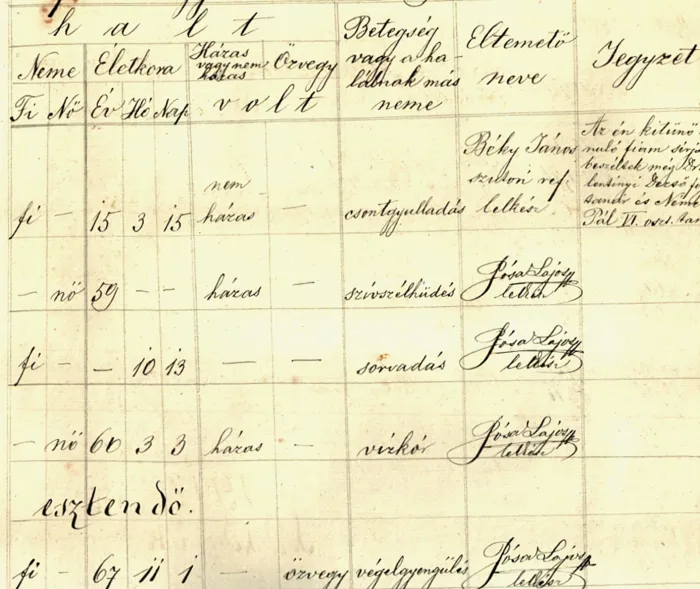 halt
Neme Életkora Házas
vagy nem
házas Özvegy
Betegség
vagy a ha-
lálnak más
neme
Eltemető
neve
Jegyzet
Fi Nő Év Hó Nap volt
fi — 15 3 15 nem
házas — csontgyulladás
Béky János
ref
lelkész.
Az én kitünő
fiam
beszéltek még
Dezső
tanár és
Pál VI. oszt. tan
— nő 59 — — házas — szívszélhüdés Pósa Lajos
lelkész
fi — — 10 13 — — sorvadás Pósa Lajos
lelkész
— nő 60 3 3 házas — vízkór Pósa Lajos
lelkész
esztendő.
fi — 67 11 1 — özvegy végelgyengülés Pósa Lajos
lelkész